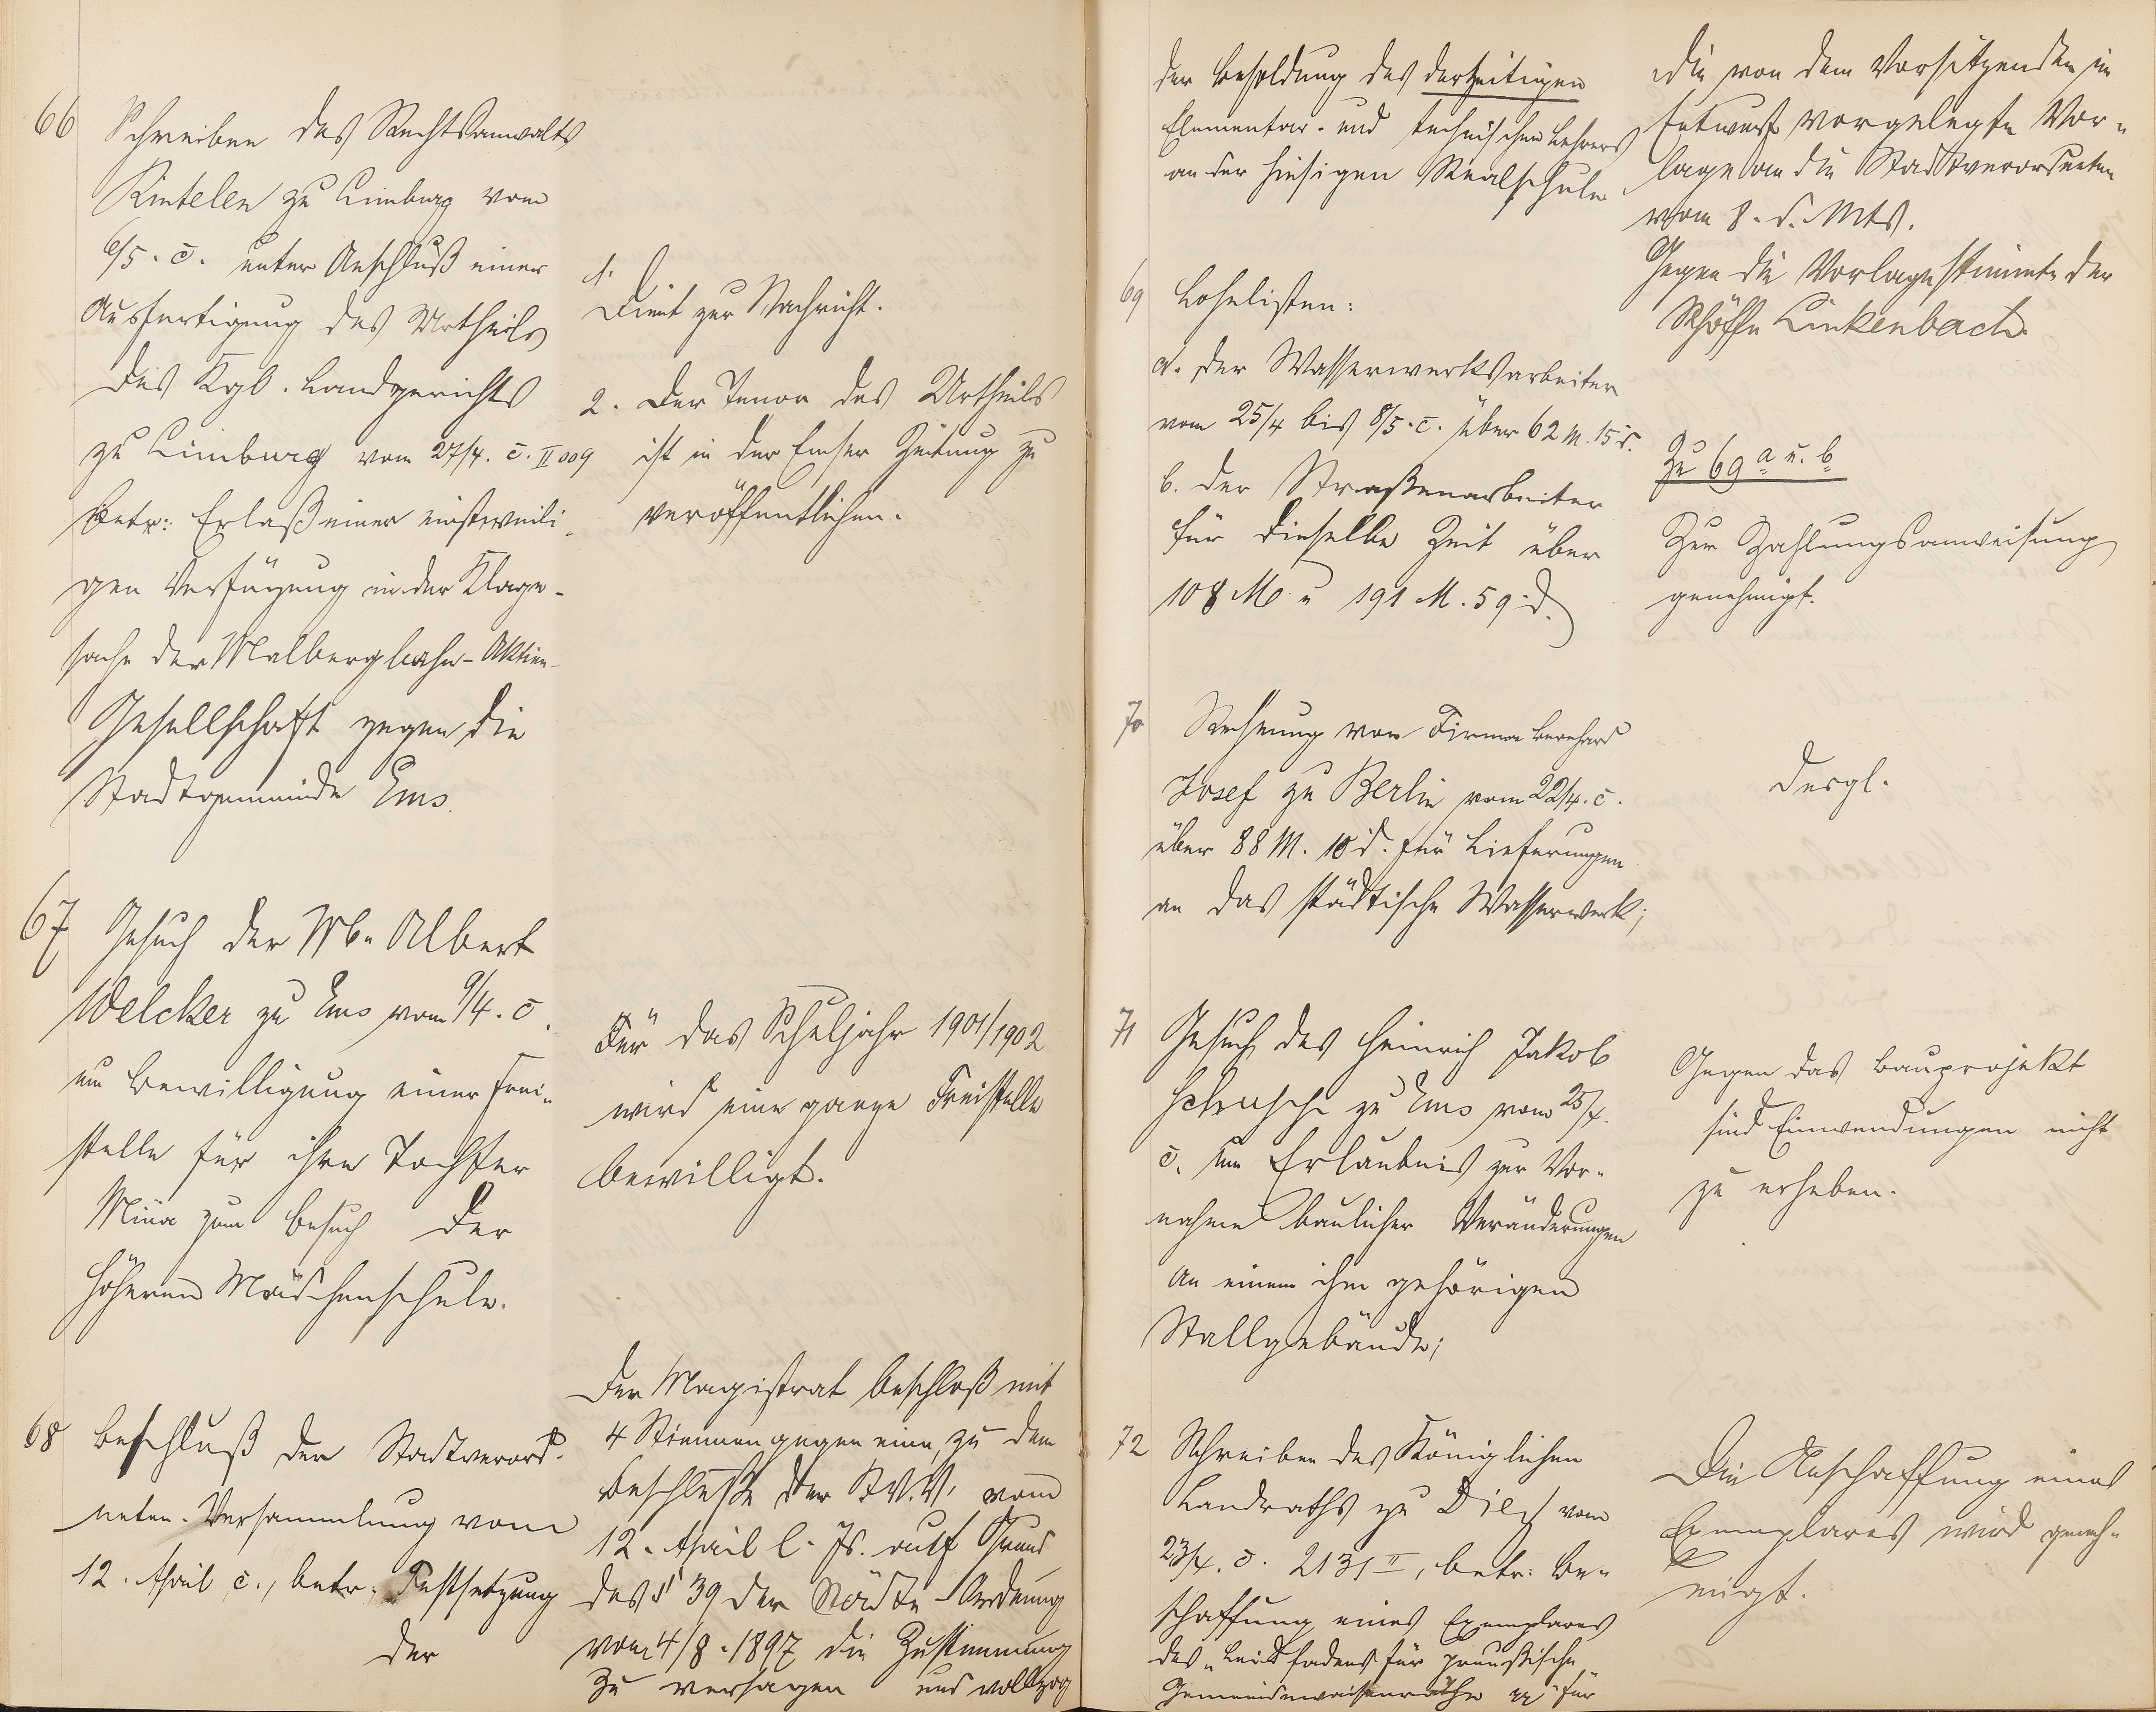 66 Schreiben des Rechtsanwalts
Rintelen zu Limburg vom
6/5. c. unter Anschluß einer
Ausfertigung des Urtheils
des Kgl. Landgerichts
zu Limburg vom 27/4. c. II 009
betr: Erlaß einer einstweili-
gen Verfügung in der Klage-
sache der Malbergbahn-Aktien-
Gesellschaft gegen die
Stadtgemeinde Ems.
1.
Dient zur Nachricht.
2. Der Tenor des Urtheils
ist in der Emser Zeitung zu
veröffentlichen.
67 Gesuch der Wb. Albert
Welcker zu Ems vom 9/4. c.
um Bewilligung einer Frei-
stelle für ihre Tochter
Mina zum Besuch der
höheren Mädchenschule.
Für das Schuljahr 1901/1902
wird eine ganze Freistelle
bewilligt.
68 Beschluß der Stadtverord-
neten-Versammlung vom
12. April c., betr. Festsetzung
der
Der Magistrat beschloß mit
4 Stimmen gegen eine, zu dem
Beschlusse der St.V.V. vom
12. April l. Js. auf Grund
des § 39 der Städte-Ordnung
vom 4/8. 1897 die Zustimmung
zu versagen und vollzog
der Besoldung des derzeitigen
Elementar- und technischen Lehrers
an der hiesigen Realschule
die von dem Vorsitzenden im
Entwurf vorgelegte Vor-
lage an die Stadtverordneten
vom 8. d. Mts.
Gegen die Vorlage stimmte der
Schöffe Linkenbach.
69 Lohnlisten:
a. der Wasserwerksarbeiter
vom 25/4 bis 8/5. c. über 62 M. 15 d.
b. der Straßenarbeiter
für dieselbe Zeit über
108 M u 191 M. 59 d.
Zu 69 a u. b
Zur Zahlungsanweisung
genehmigt.
70 Rechnung von Firma Bernhard
Josef zu Berlin vom 22/4. c.
über 88 M. 10 d. für Lieferungen
an das städtische Wasserwerk;
Desgl.
71 Gesuch des Heinrich Jakob
zu Ems vom 25/4.
c. um Erlaubnis zur Vor-
nahme baulicher Veränderungen
an einem ihm gehörigen
Stallgebäude;
Gegen das Bauprojekt
sind Einwendungen nicht
zu erheben.
72 Schreiben des Königlichen
Landraths zu Diez vom
23/4. c. 2131 II, betr: Be-
schaffung eines Exemplares
des "Leitfadens für preußische
Gemeindewaisenräthe" für
Die Anschaffung eines
Exemplares wird geneh-
migt.